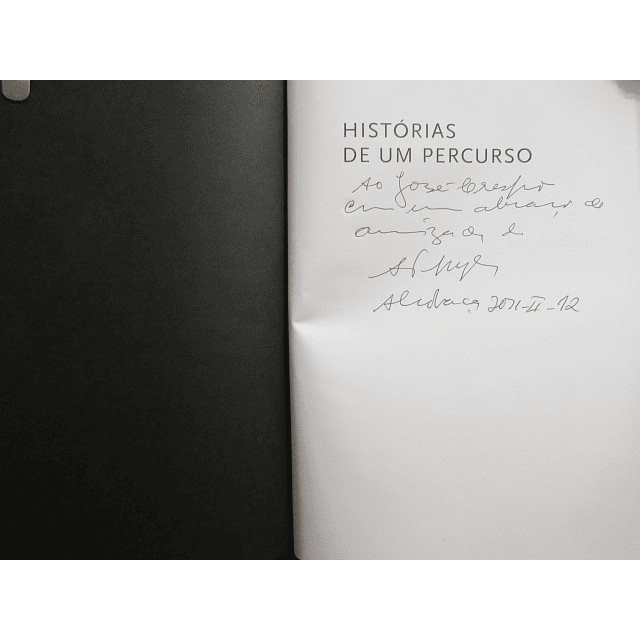 HISTÓRIAS
DE UM PERCURSO
Ao José Crespo
com um abraço de
amizade de
Alcobaça 2011-II-12